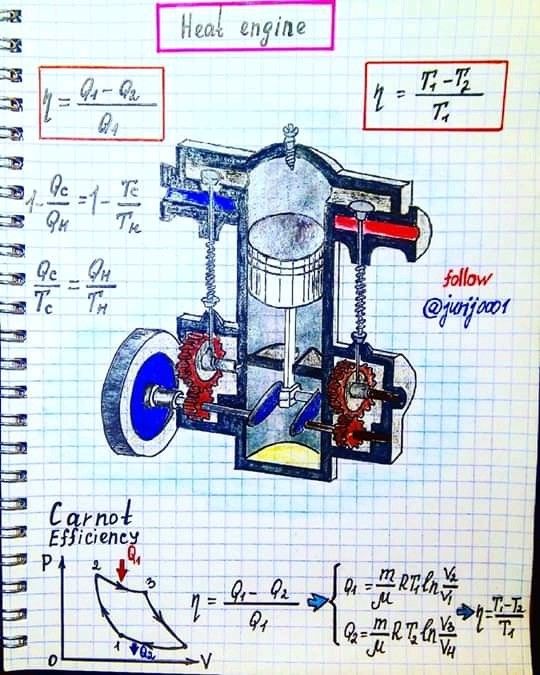 Heat engine
η = (Q₁ - Q₂)/Q₁
η = (T₁ - T₂)/T₁
1 - Qc/QH = 1 - Tc/TH
Qc/Tc = QH/TH
follow
@jurij0001
Carnot
Efficiency
P
2
Q₁
3
1
Q₂
0
V
η = (Q₁ - Q₂)/Q₁
Q₁ = m/μ RT₁ ln V₂/V₁
Q₂ = m/μ RT₂ ln V₃/V₄
η = (T₁ - T₂)/T₁